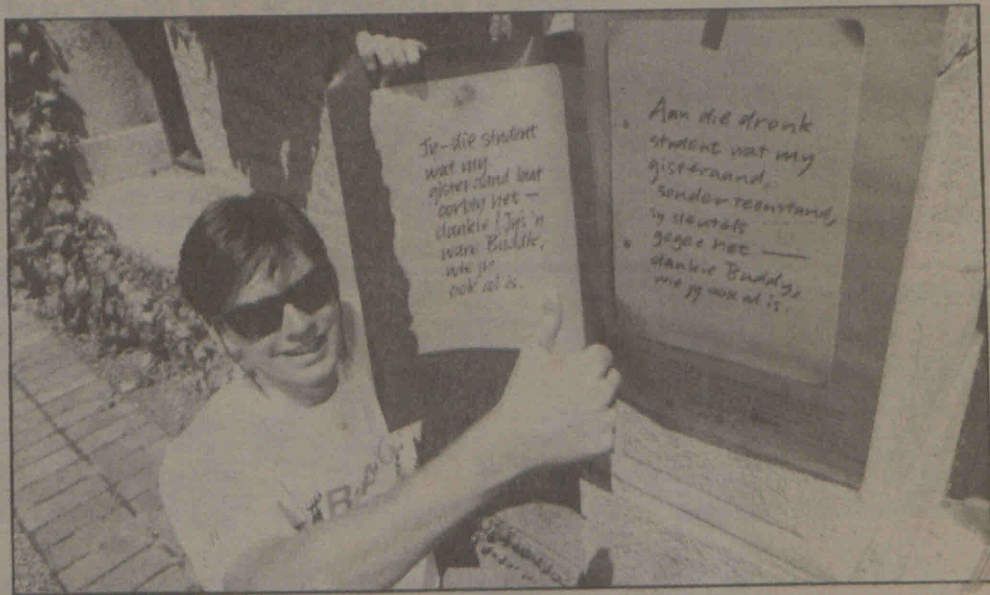 Jy - die student
wat my
gisteraand laat
het —
dankie! Jy's 'n
ware Buddie,
wie jy
ook al is.
Aan die dronk
student wat my
gisteraand,
sonder teenstand,
sy sleutels
gegee het —
dankie Buddy,
wie jy ook al is.